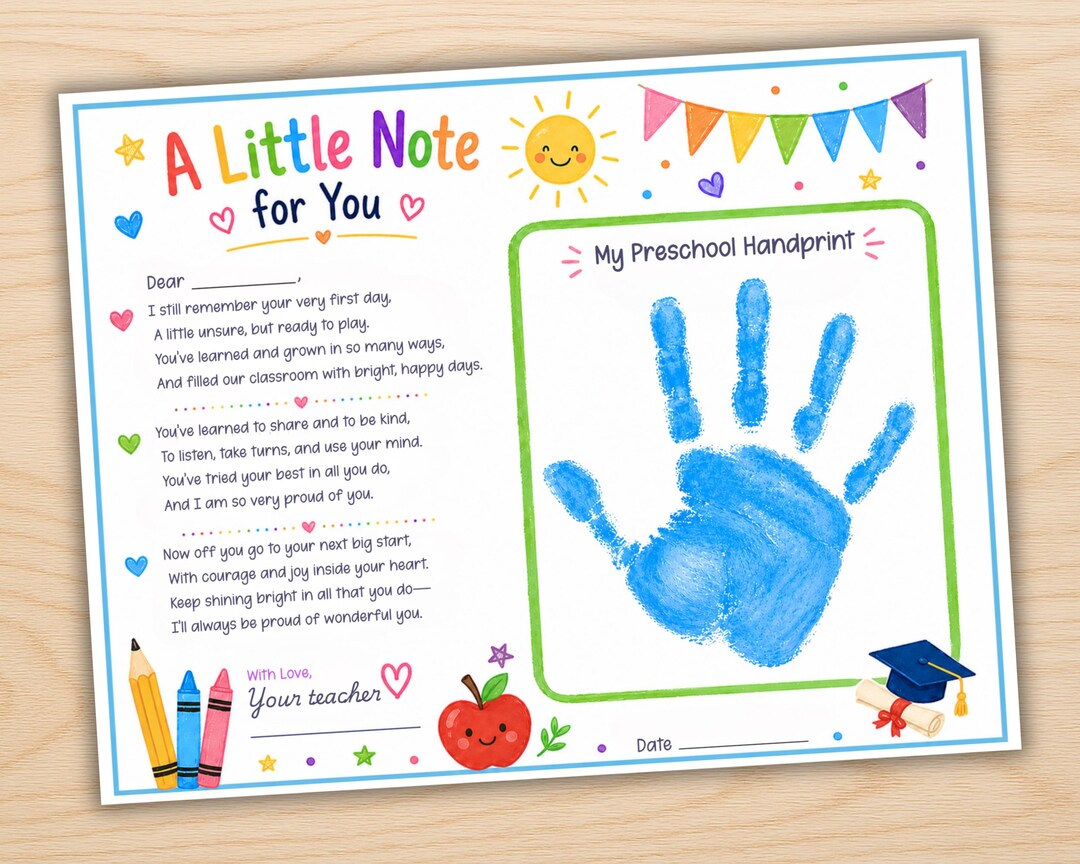 A Little Note
for You
Dear __________,
I still remember your very first day,
A little unsure, but ready to play.
You've learned and grown in so many ways,
And filled our classroom with bright, happy days.
You've learned to share and to be kind,
To listen, take turns, and use your mind.
You've tried your best in all you do,
And I am so very proud of you.
Now off you go to your next big start,
With courage and joy inside your heart.
Keep shining bright in all that you do—
I'll always be proud of wonderful you.
With Love,
Your teacher
My Preschool Handprint
Date __________